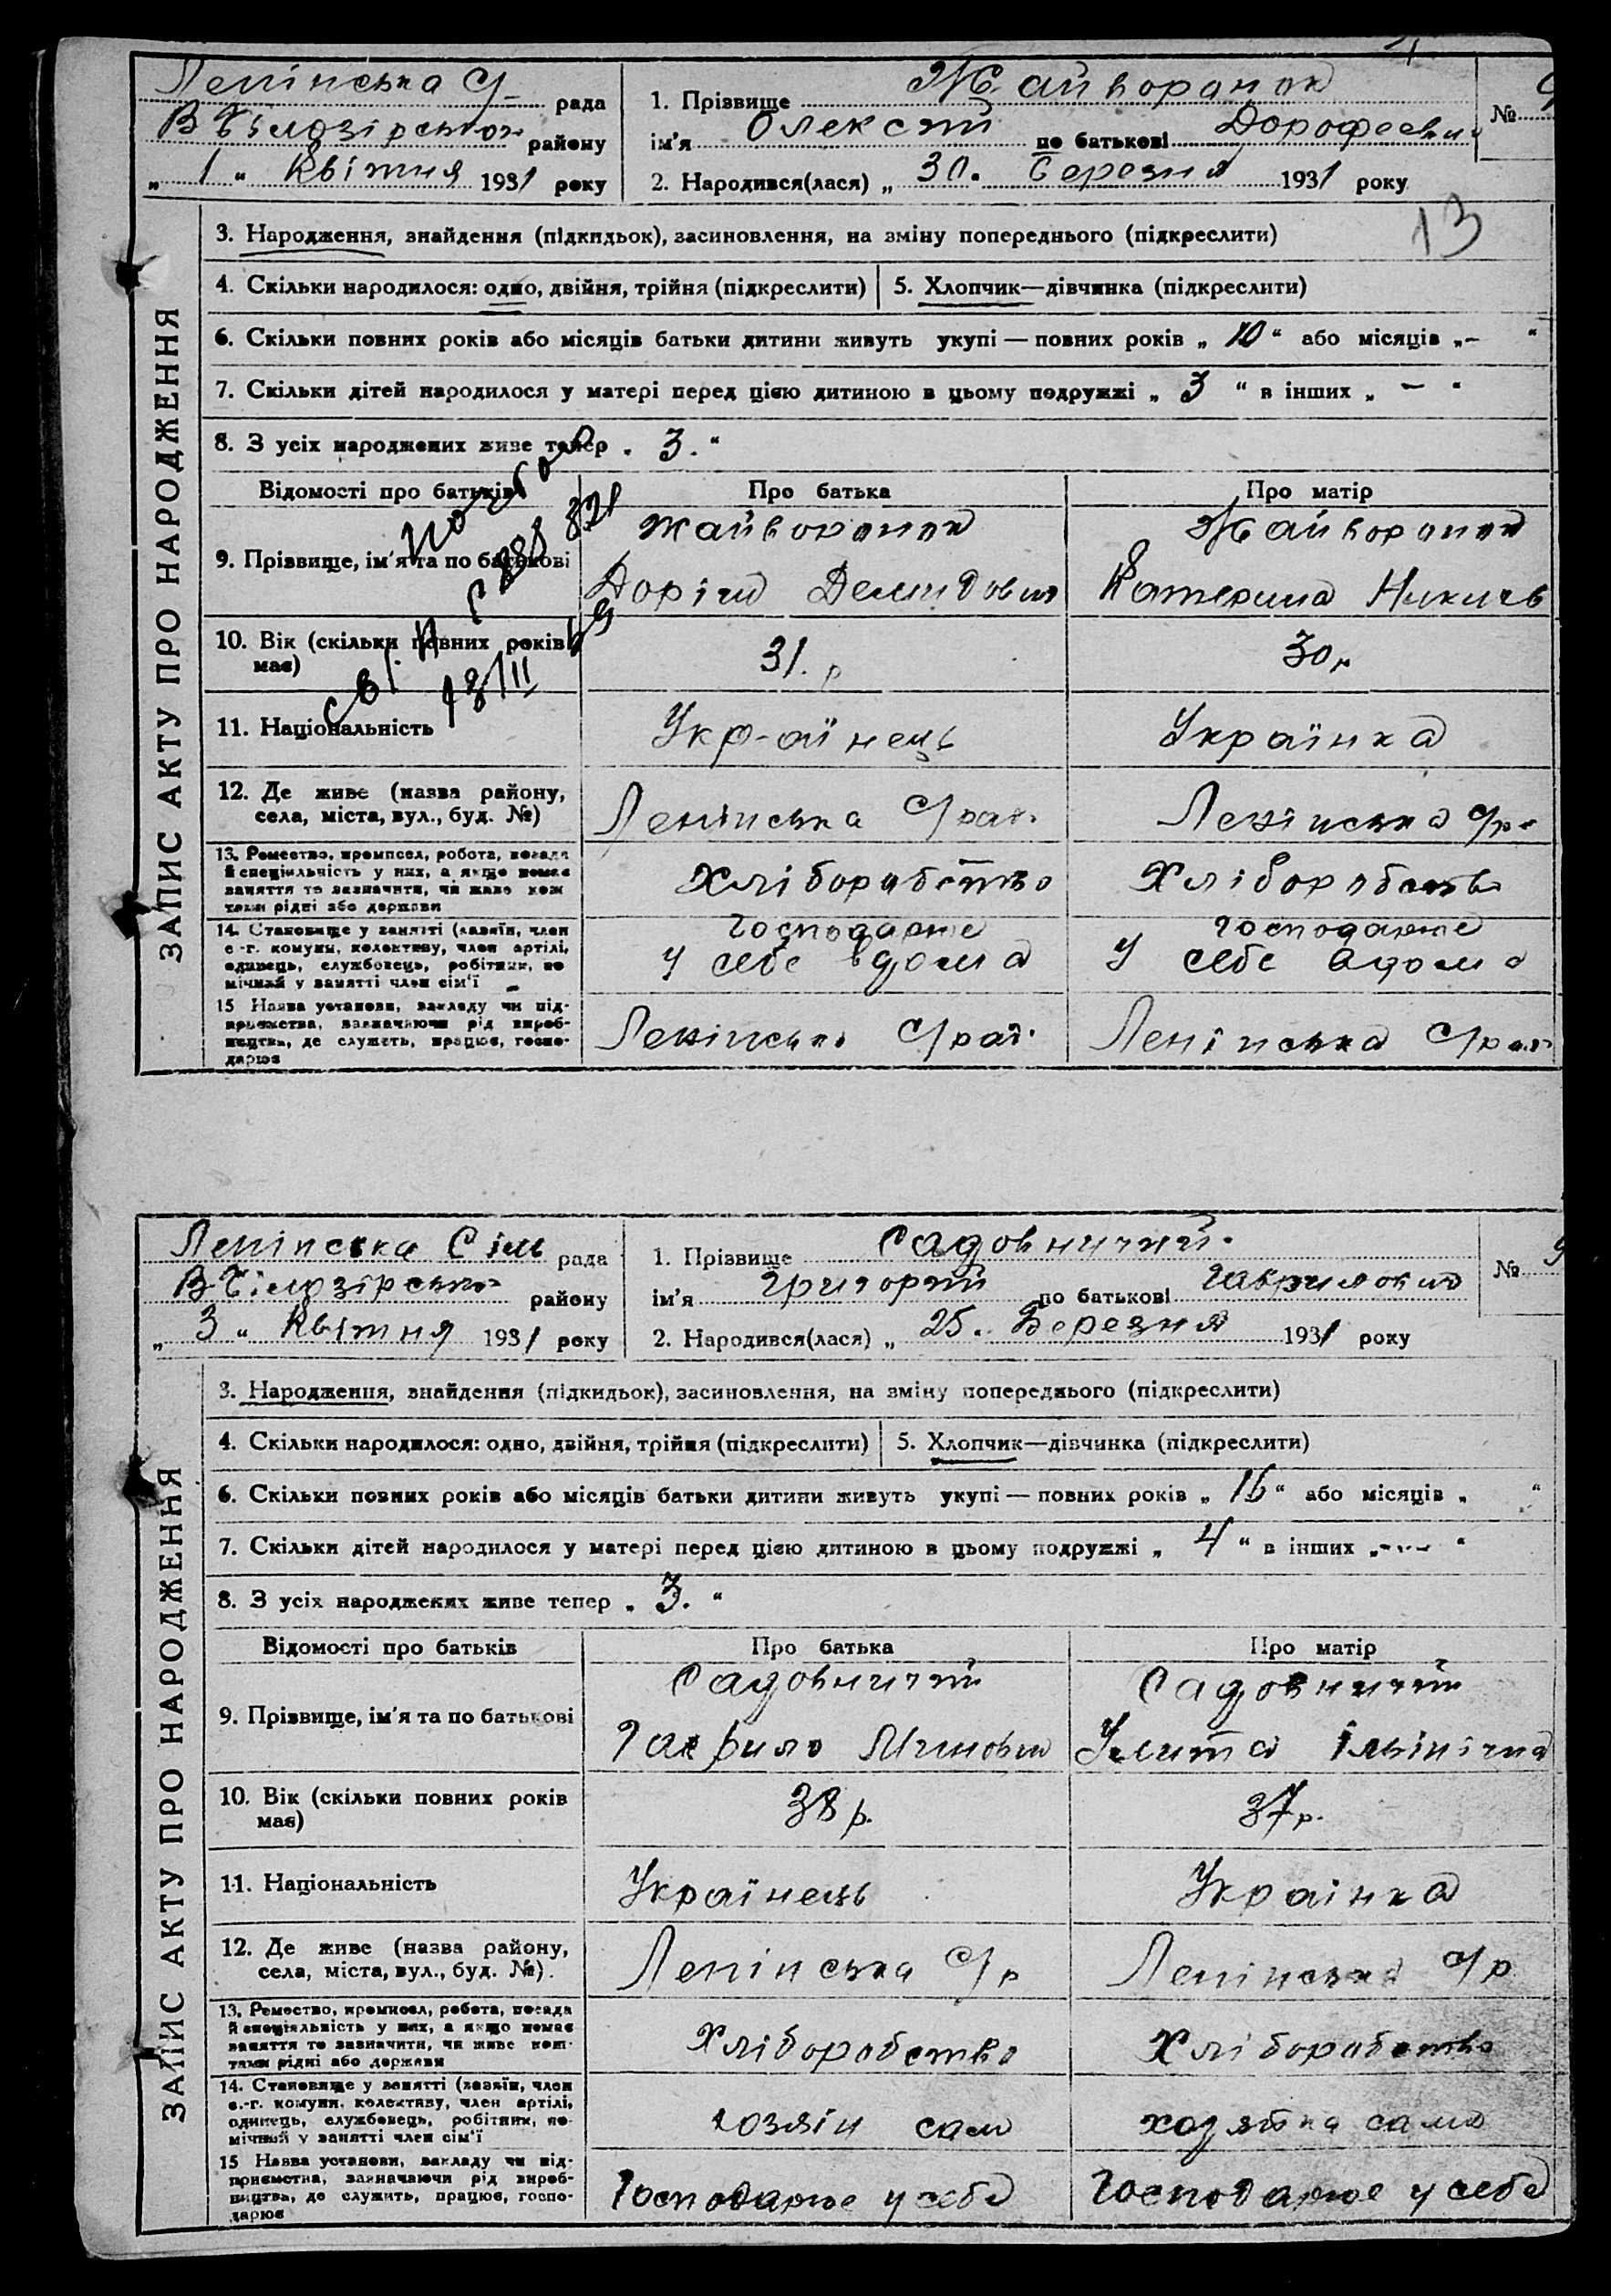 Ленінська С/ рада
В Білозірського району
„ 1 “ Квітня 1931 року
1. Прізвище Жайворонок
ім’я Олексій по батькові Дорофеєвич
2. Народився(лася) „ 30. Березня 1931 року
№ 9
13
ЗАПИС АКТУ ПРО НАРОДЖЕННЯ
3. Народження, знайдення (підкидьок), засиновлення, на зміну попереднього (підкреслити)
4. Скільки народилося: одно, двійня, трійня (підкреслити)
5. Хлопчик—дівчинка (підкреслити)
6. Скільки повних років або місяців батьки дитини живуть укупі — повних років „ 10 “ або місяців „ – “
7. Скільки дітей народилося у матері перед цією дитиною в цьому подружжі „ 3 “ в інших „ – “
8. З усіх народжених живе тепер „ 3. “
Відомості про батьків
Про батька
Про матір
9. Прізвище, ім’я та по батькові
Жайворонок
Доріш Демидович
Жайворонок
Катерина Никич
10. Вік (скільки повних років має)
31. р
30 р
11. Національність
Укр-аїнець
Українка
12. Де живе (назва району,
села, міста, вул., буд. №)
Ленінська С/рад.
Ленінська с/р.
13. Ремество, промисел, робота, посада
й спеціяльність у них, а якщо немає
заняття то зазначити, чи живе кош
тами рідні або держави
Хліборобство
Хліборобство
14. Становище у занятті (хазяїн, член
с.-г. комуни, колективу, член артілі,
одинець, службовець, робітник, по
мічний у занятті член сім’ї
Господарює
у себе вдома
Господарює
у себе вдома
15 Назва установи, закладу чи під-
приємства, зазначаючи рід вироб-
ництва, де служить, працює, госпо-
дарює
Ленінська С/рад.
Ленінська С/рад.
Ленінська Сіль рада
В-Білозірського району
„ 3 “ Квітня 1931 року
1. Прізвище Садовничий.
ім’я Григорій по батькові Гаврилович
2. Народився(лася) „ 25. Березня 1931 року
№ 9
ЗАПИС АКТУ ПРО НАРОДЖЕННЯ
3. Народження, знайдення (підкидьок), засиновлення, на зміну попереднього (підкреслити)
4. Скільки народилося: одно, двійня, трійня (підкреслити)
5. Хлопчик—дівчинка (підкреслити)
6. Скільки повних років або місяців батьки дитини живуть укупі — повних років „ 16 “ або місяців „ “
7. Скільки дітей народилося у матері перед цією дитиною в цьому подружжі „ 4 “ в інших „ – “
8. З усіх народжених живе тепер „ 3. “
Відомості про батьків
Про батька
Про матір
9. Прізвище, ім’я та по батькові
Садовничий
Гаврило Минович
Садовничий
Улита Ільінічна
10. Вік (скільки повних років
має)
38 р.
37 р.
11. Національність
Українець
Українка
12. Де живе (назва району,
села, міста, вул., буд. №).
Ленінська С/р
Ленінська С/р
13. Ремество, промисел, робота, посада
й спеціяльність у них, а якщо немає
заняття то зазначити, чи живе кош-
тами рідні або держави
Хліборобство
Хліборобство
14. Становище у занятті (хазяїн, член
с.-г. комуни, колективу, член артілі,
одинець, службовець, робітник, по-
мічний у занятті член сім’ї
хозяін сам
хозяйка сама
15 Назва установи, закладу чи під-
приємства, зазначаючи рід вироб-
ництва, де служить, працює, госпо-
дарює
Господарює у себе
Господарює у себе